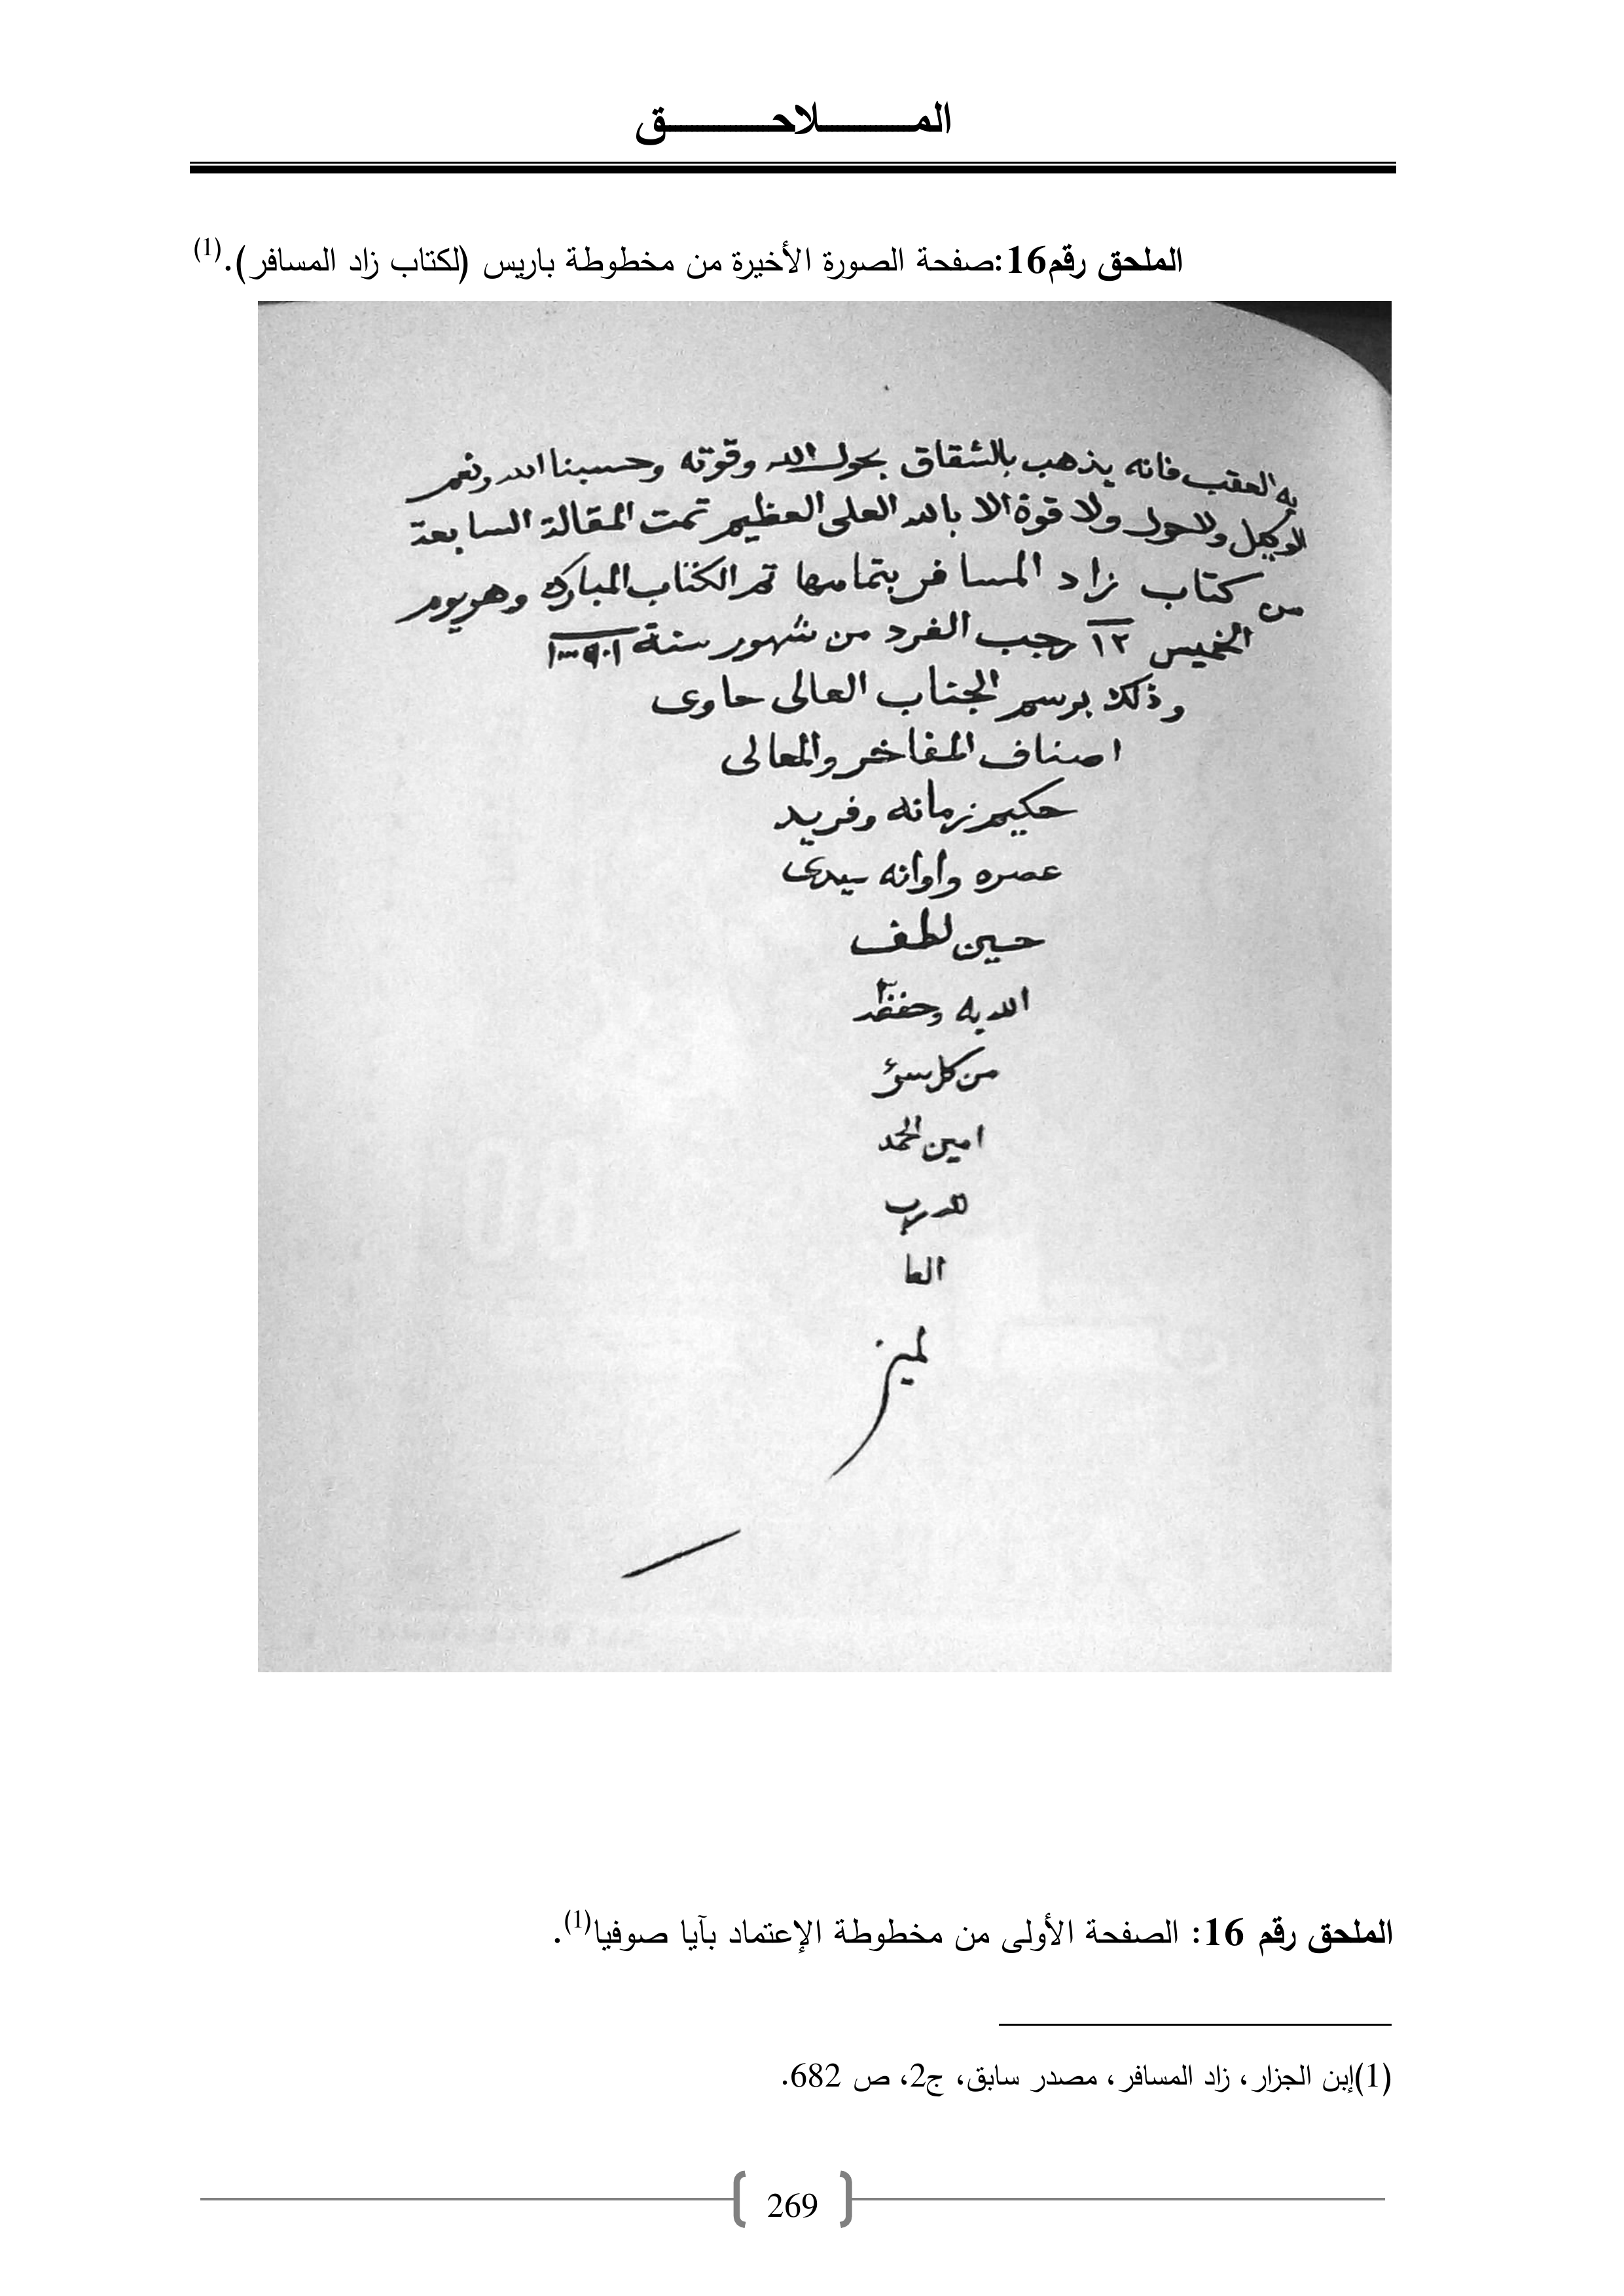 المـــــــــلاحـــــــــــق
الملحق رقم16:صفحة الصورة الأخيرة من مخطوطة باريس (لكتاب زاد المسافر).(1)
به العقب فانه يذهب بالشقاق بحول الله وقوته وحسبنا الله ونعم
الوكيل ولا حول ولا قوة الا بالله العلى العظيم تمت المقالة السابعة
من كتاب زاد المسافر بتمامها تم الكتاب المبارك وهو يوم
الخميس ١٢ رجب الفرد من شهور سنة
وذلك برسم الجناب العالى حاوى
اصناف المفاخر والمعالى
حكيم زمانه وفريد
عصره واوانه سيدى
حسين لطف
الله به وحفظه
من كل سوء
امين الحمد
لله رب
العا
لمين
الملحق رقم 16: الصفحة الأولى من مخطوطة الإعتماد بآيا صوفيا(1).
(1)إبن الجزار، زاد المسافر، مصدر سابق، ج2، ص 682.
269